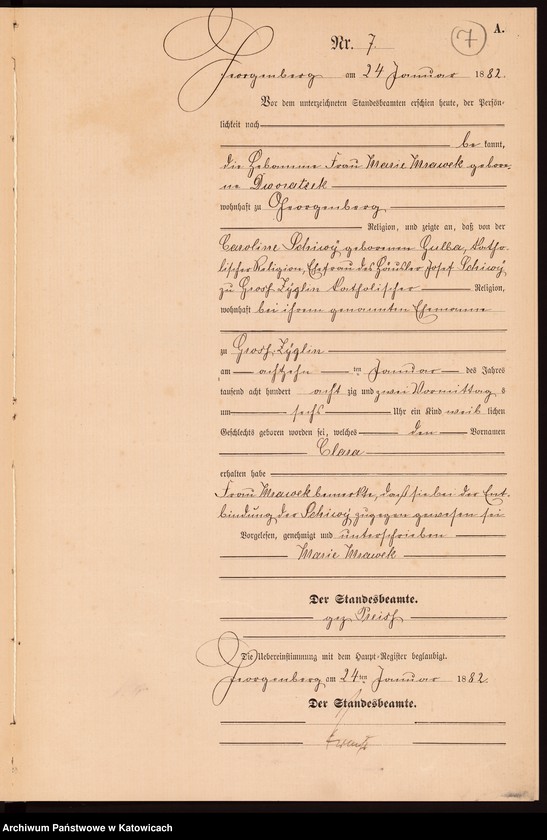 A.
Nr. 7.
7
Georgenberg am 24 Januar 1882.
Vor dem unterzeichneten Standesbeamten erschien heute, der Persön-
lichkeit nach
be kannt,
die Hebamme Frau Marie Mrawek gebore-
ne Dworatzek
wohnhaft zu Georgenberg
Religion, und zeigte an, daß von der
Caroline Schiwÿ geborenen Gulba, katho-
lischer Religion, Ehefrau des Häusler Josef Schiwÿ
zu Groß Zÿglin katholischer Religion,
wohnhaft bei ihrem genannten Ehemanne
zu Groß Zÿglin
am achtzehn ten Januar des Jahres
tausend acht hundert acht zig und zwei Vormittag s
um sechs Uhr ein Kind weib lichen
Geschlechts geboren worden sei, welches den Vornamen
Clara
erhalten habe
Frau Mrawek bemerkte, daß sie bei der Ent-
bindung der Schiwÿ zugegen gewesen sei
Vorgelesen, genehmigt und unterschrieben
Marie Mrawek
Der Standesbeamte.
gez Preiß
Die Uebereinstimmung mit dem Haupt-Register beglaubigt.
Georgenberg am 24ten Januar 1882.
Der Standesbeamte.
Archiwum Państwowe w Katowicach